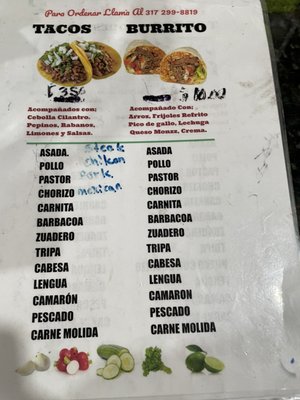 Para Ordenar Llama Al 317 299-8819
TACOS
BURRITO
Acompañados con:
Cebolla Cilantro.
Pepinos, Rabanos,
Limones y Salsas.
Acompañado con:
Arroz, Frijoles Refrito
Pico de gallo, Lechuga
Queso Monzz, Crema.
ASADA. Steak
POLLO chikan
PASTOR Pork.
CHORIZO mexican
CARNITA
BARBACOA
ZUADERO
TRIPA
CABESA
LENGUA
CAMARÓN
PESCADO
CARNE MOLIDA
ASADA
POLLO
PASTOR
CHORIZO
CARNITA
BARBACOA
ZUADERO
TRIPA
CABESA
LENGUA
CAMARON
PESCADO
CARNE MOLIDA